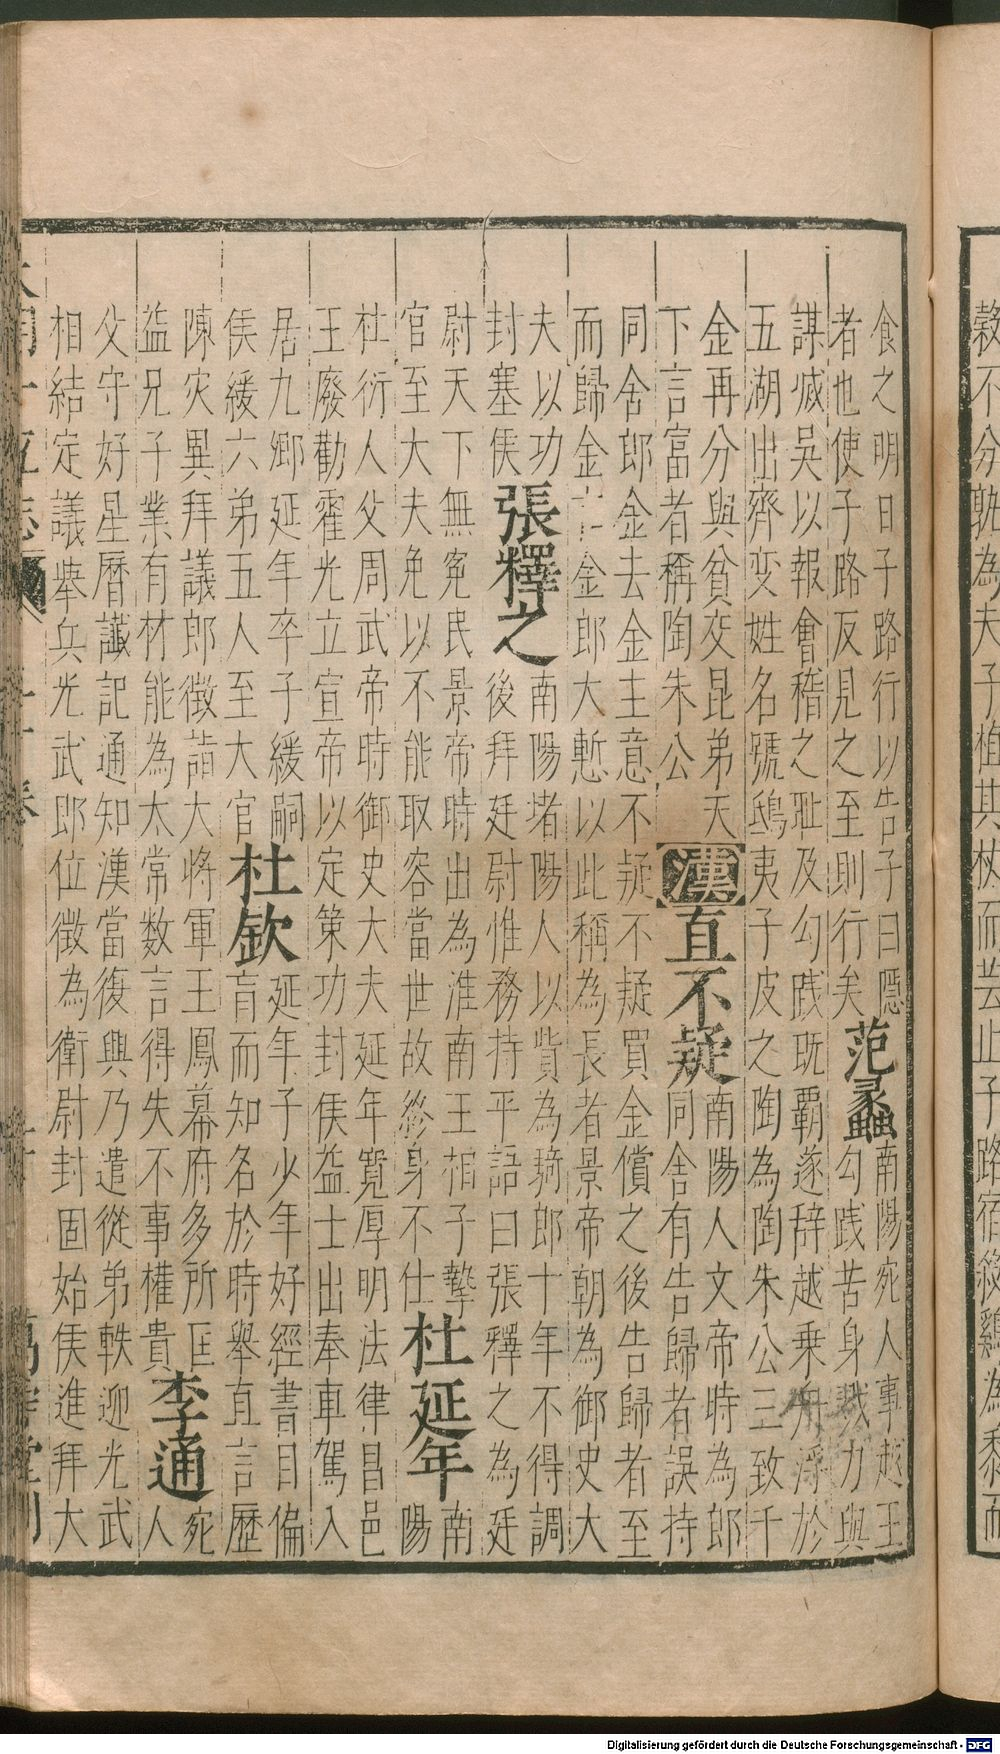 穀不分孰為夫子植其杖而芸止子路宿殺雞為黍而
食之明日子路行以告子曰隱
者也使子路反見之至則行矣
范蠡
南陽宛人事越王
勾践苦身戮力與
謀滅吳以報會稽之耻及勾踐既霸遂辭越乗舟浮於
五湖出齊变姓名號鴟夷子皮之陶為陶朱公三致千
金再分與貧交昆弟天
下言富者稱陶朱公
漢直不疑
南陽人文帝時為郎
同舍有告歸者誤持
同舍郎金去金主意不疑不疑買金償之後告歸者至
而歸金亡金郎大慙以此稱為長者景帝朝為御史大
夫以功
封塞侯
張釋之
南陽堵陽人以貲為騎郎十年不得調
後拜廷尉惟務持平語曰張釋之為廷
尉天下無冤民景帝時出為淮南王相子摯
官至大夫免以不能取容當世故終身不仕
杜延年
南
陽
杜衍人父周武帝時御史大夫延年寬厚明法律昌邑
王廢勸霍光立宣帝以定策功封侯益士出奉車駕入
居九卿延年卒子緩嗣
侯緩六弟五人至大官
杜欽
延年子少年好經書目偏
盲而知名於時舉直言歷
陳灾異拜議郎徵詣大將軍王鳳幕府多所匡
益兄子業有材能為太常数言得失不事權貴
李通
宛
人
父守好星曆讖記通知漢當復興乃遣從弟軼迎光武
相結定議舉兵光武即位徵為衛尉封固始侯進拜大
大明一統志
萬壽堂刊
Digitalisierung gefördert durch die Deutsche Forschungsgemeinschaft - DFG